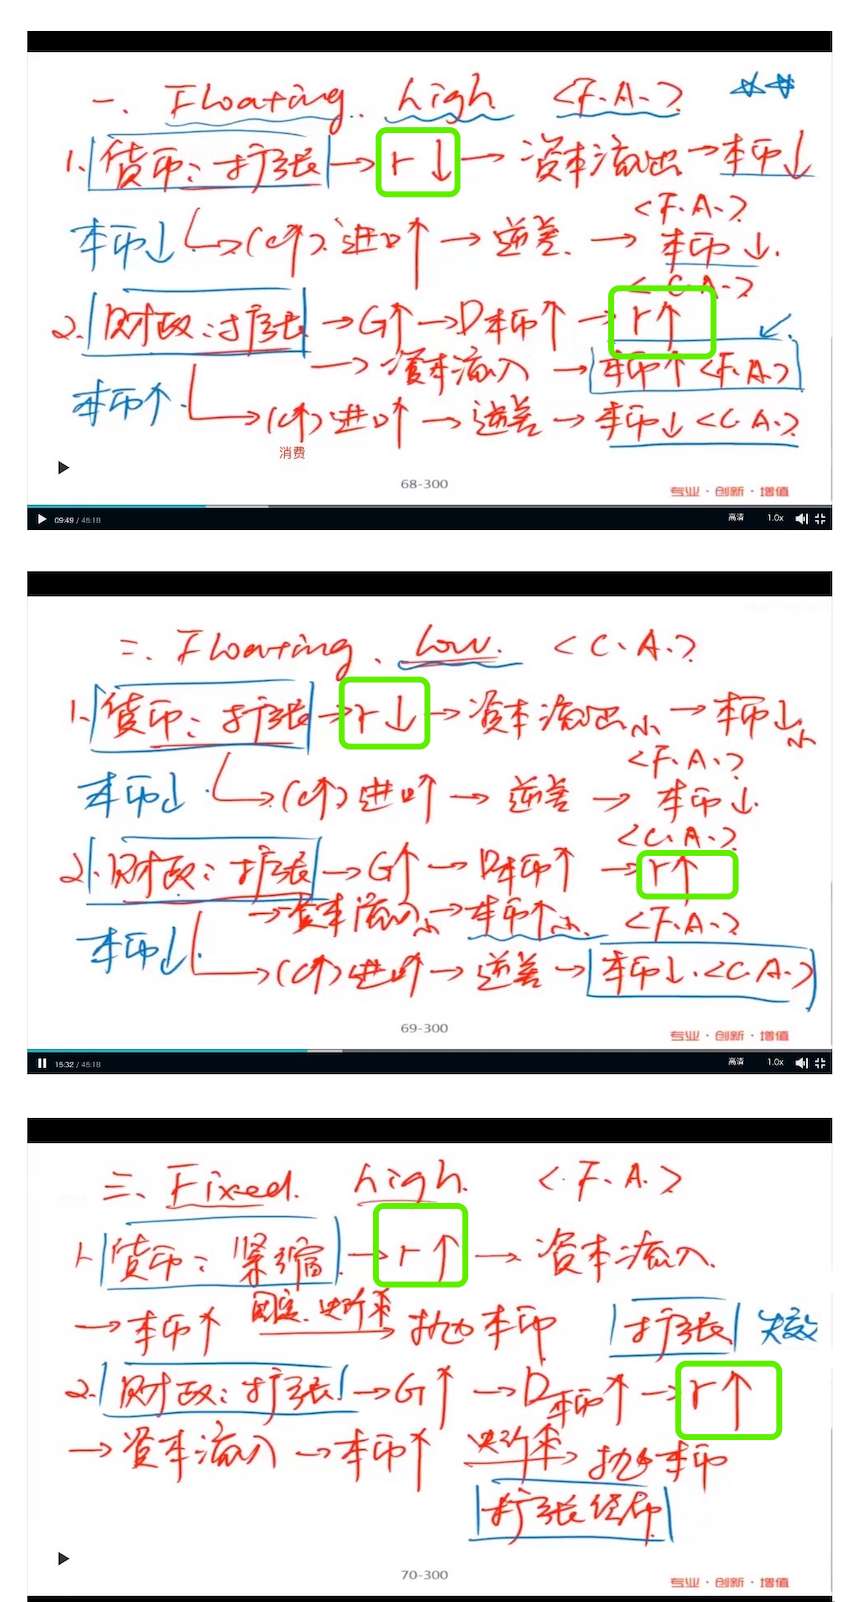 一、Floating. high <F.A.>
1. 货币:扩张 → r↓ → 资本流出 → 本币↓
<F.A.>
本币↓ (C↑) 进口↑ → 逆差. → 本币↓.
<C.A.>
2. 财政:扩张 → G↑ → D本币↑ → r↑
→ 资本流入 → 本币↑ <F.A.>
本币↑. → (C↑) 进口↑ → 逆差 → 本币↓ <C.A.>
消费
68-300
专业·创新·增值
09:49 / 45:18 高清 1.0x
二、Floating、low. <C.A.>
1. 货币:扩张 → r↓ → 资本流出小 → 本币↓小
<F.A.>
本币↓. → (C↑) 进口↑ → 逆差 → 本币↓.
<C.A.>
2. 财政:扩张 → G↑ → D本币↑ → r↑
→ 资本流入小 → 本币↑小. <F.A.>
本币↓. → (C↑) 进口↑ → 逆差 → 本币↓.<C.A.>
69-300
专业·创新·增值
15:32 / 45:18 高清 1.0x
三、Fixed. high. <F.A.>
1. 货币:紧缩 → r↑ → 资本流入.
→ 本币↑ 固定.央行来→ 抛本币 扩张 失效
2. 财政:扩张 → G↑ → D本币↑ → r↑
→ 资本流入 → 本币↑ 央行来→ 抛本币
扩张经济
70-300
专业·创新·增值